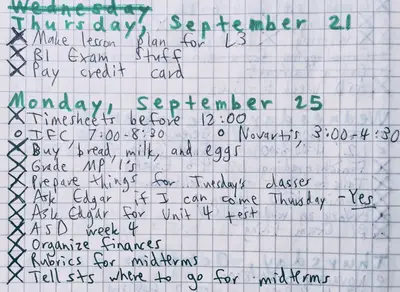 Wednesday
Thursday, September 21
Make lesson plan for L3
B1 Exam Stuff
Pay credit card
Monday, September 25
Timesheets before 12:00
IFC 7:00-8:30 o Novartis, 3:00-4:30
Buy bread, milk, and eggs
Grade MP 1's
Prepare things for Tuesday's classes
Ask Edgar if I can come Thursday - Yes
Ask Edgar for Unit 4 test
ASD week 4
Organize finances
Rubrics for midterms
Tell sts where to go for midterms